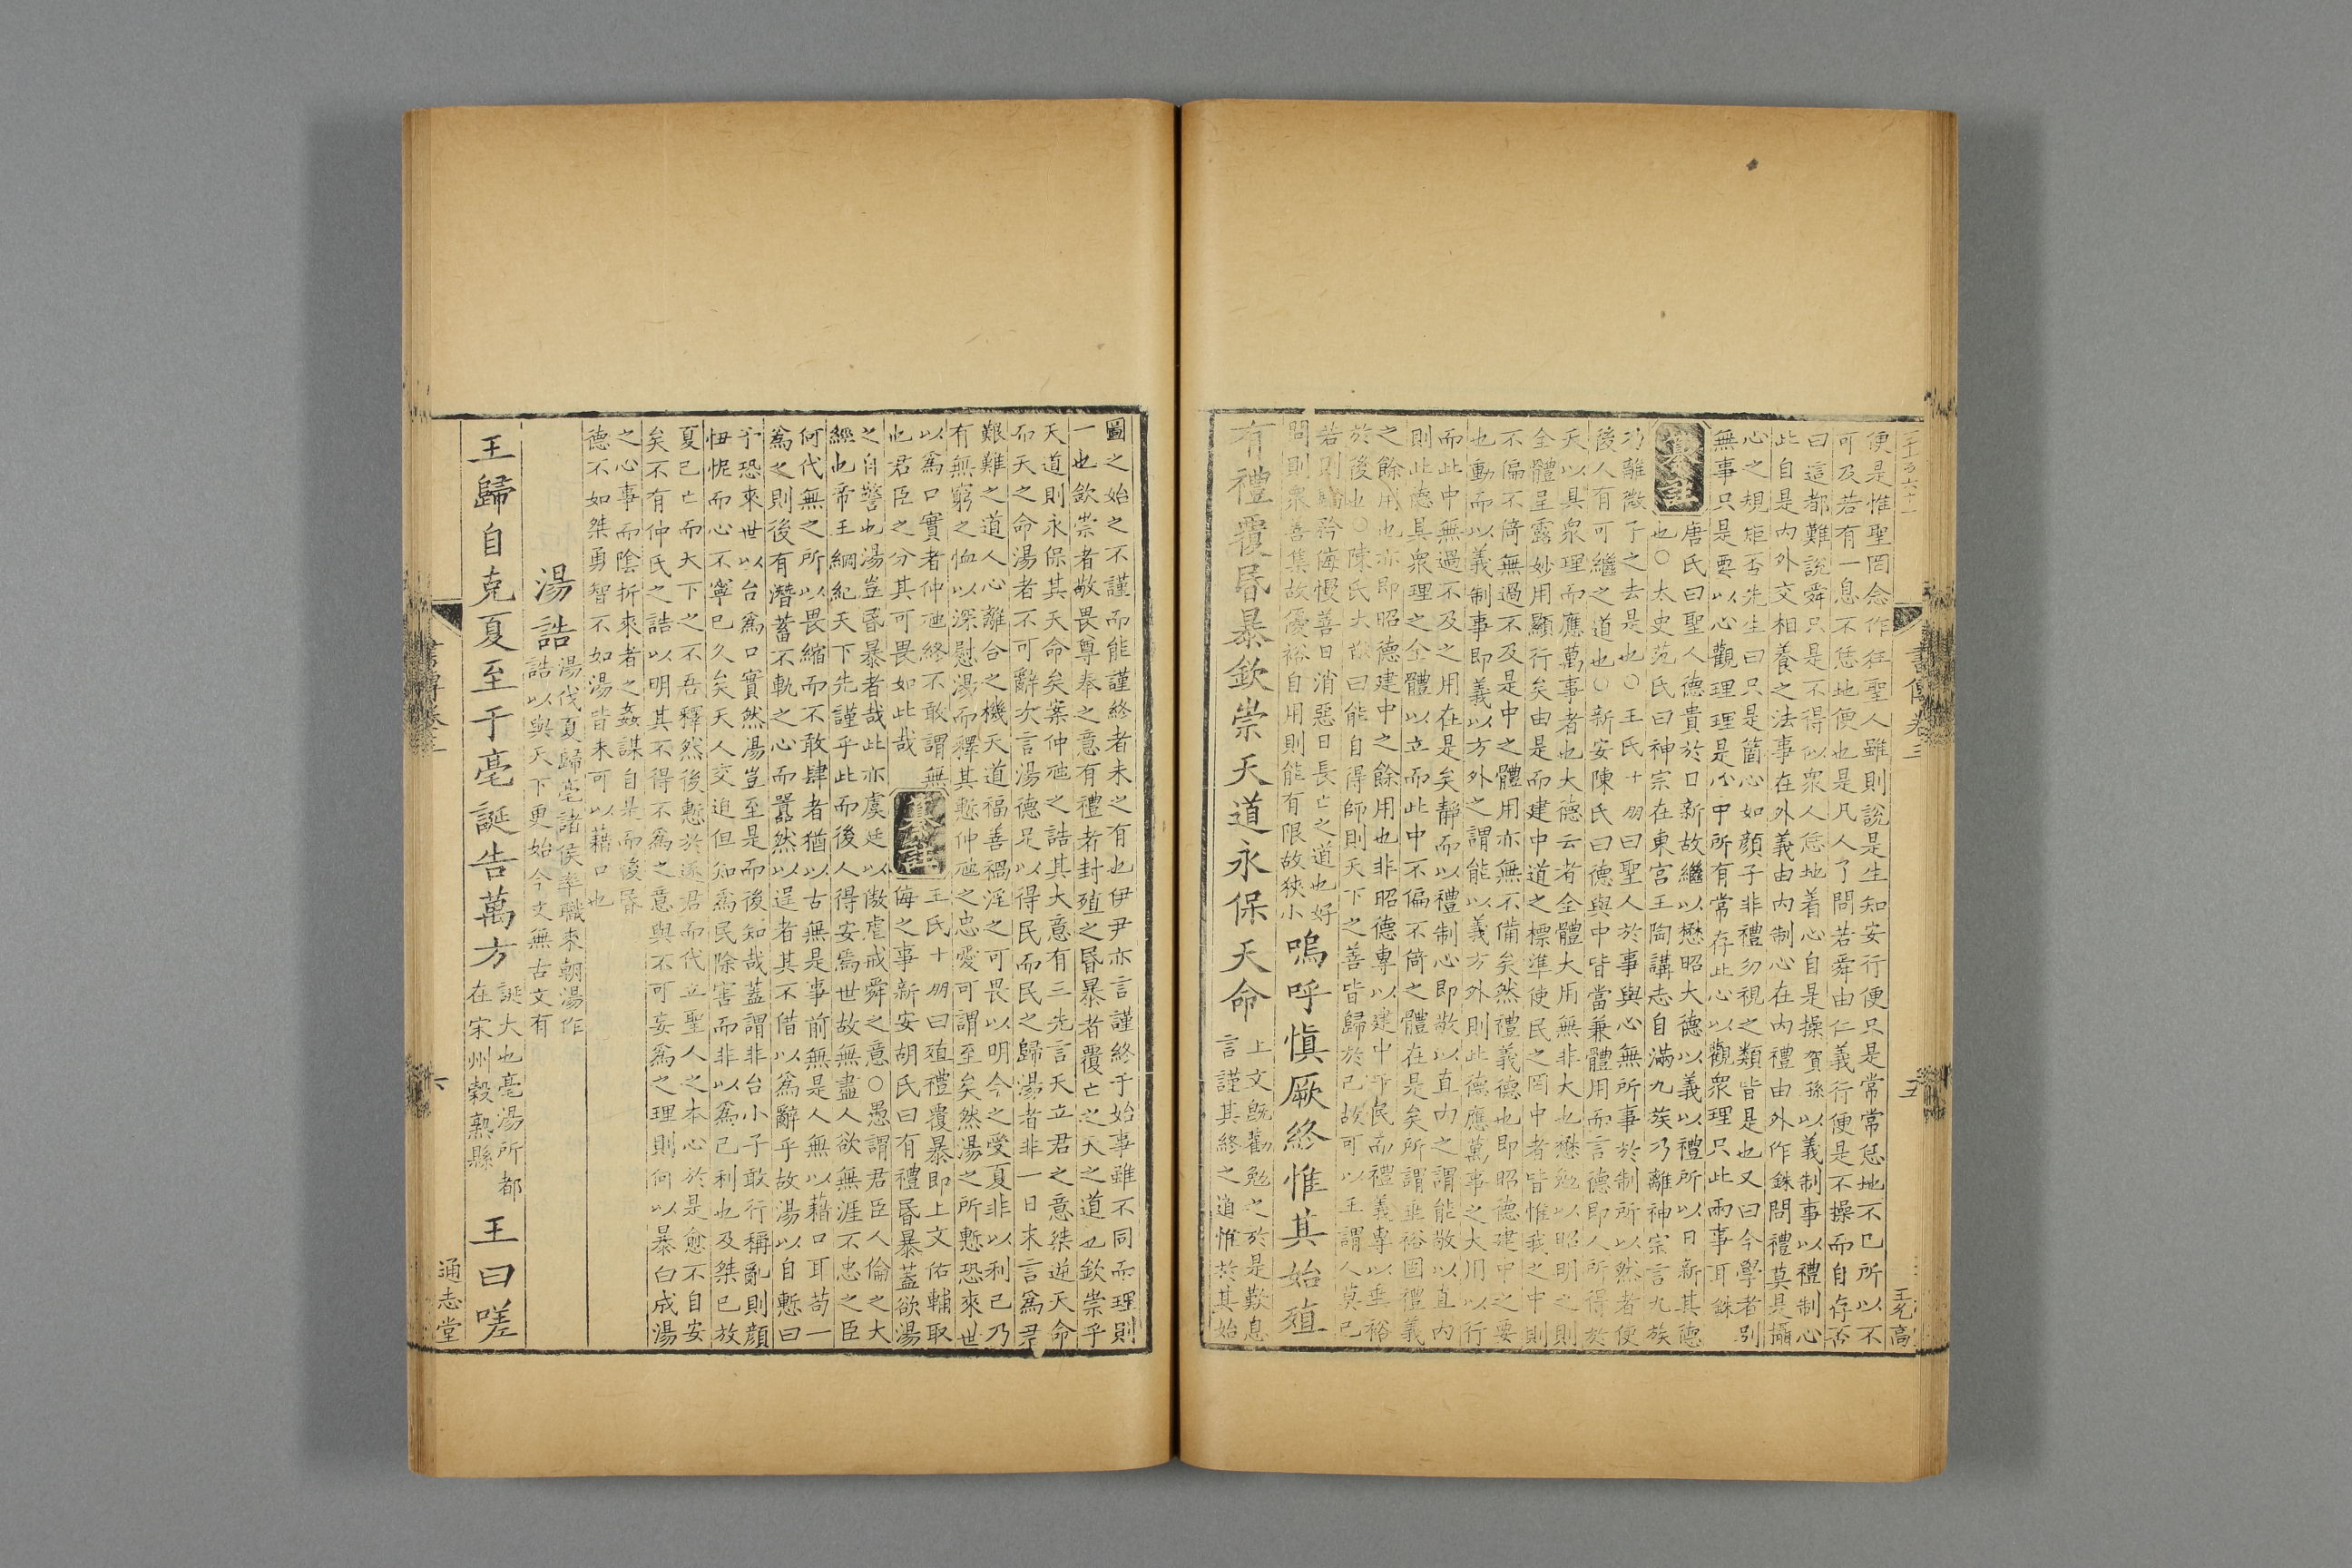 書傳卷三
五
便是惟聖罔念作狂聖人雖則說是生知安行便只是常常恁地不已所以不
可及若有一息不恁地便也是凡人了問若舜由仁義行便是不操而自存否
曰這都難說舜只是不得似衆人恁地着心自是操賀孫以義制事以禮制心
此自是內外交相養之法事在外義由內制心在內禮由外作銖問禮莫是攝
心之規矩否先生曰只是箇心如顏子非禮勿視之類皆是也又曰今學者别
無事只是要以心觀理理是心中所有常存此心以觀衆理只此兩事耳銖
纂註
唐氏曰聖人德貴於日新故繼以懋昭大德以義以禮所以日新其德
也○太史范氏曰神宗在東宮王陶講志自滿九族乃離神宗言九族
功離微子之去是也○王氏十朋曰聖人於事與心無所事於制所以然者便
後人有可繼之道也○新安陳氏曰德與中皆當兼體用而言德卽人所得於
天以具衆理而應萬事者也大德云者全體大用無非大也懋勉以昭明之則
全體呈露妙用顯行矣由是而建中道之標準使民之罔中者皆惟我之中則
不偏不倚無過不及是中之體用亦無不備矣然禮義德也卽昭德建中之要
也動而以義制事卽義以方外之謂能以義方外則此德應萬事之大用以行
而此中無過不及之用在是矣靜而以禮制心卽敬以直內之謂能敬以直內
則此德具衆理之全體以立而此中不偏不倚之體在是矣所謂垂裕固禮義
之餘用也亦卽昭德建中之餘用也非昭德專以建中于民而禮義專以垂裕
於後也○陳氏大猷曰能自得師則天下之善皆歸於己故可以王謂人莫己
若則驕矜侮慢善日消惡日長亡之道也好
問則衆善集故優裕自用則能有限故狹小
嗚呼愼厥終惟其始殖
有禮覆昏暴欽崇天道永保天命
上文旣勸勉之於是歎息
言謹其終之道惟於其始
圖之始之不謹而能謹終者未之有也伊尹亦言謹終于始事雖不同而理則
一也欽崇者敬畏尊奉之意有禮者封殖之昏暴者覆亡之天之道也欽崇乎
天道則永保其天命矣案仲虺之誥其大意有三先言天立君之意桀逆天命
而天之命湯者不可辭次言湯德足以得民而民之歸湯者非一日末言爲君
艱難之道人心離合之機天道福善禍淫之可畏以明今之受夏非以利己乃
有無窮之恤以深慰湯而釋其慙仲虺之忠愛可謂至矣然湯之所慙恐來世
以爲口實者仲虺終不敢謂無
也君臣之分其可畏如此哉
纂註
王氏十朋曰殖禮覆暴卽上文佑輔取
侮之事新安胡氏曰有禮昏暴蓋欲湯
之自警也湯豈昏暴者哉此亦虞廷以傲虐戒舜之意○愚謂君臣人倫之大
經也帝王綱紀天下先謹乎此而後人得安焉世故無盡人欲無涯不忠之臣
何代無之所以畏縮而不敢肆者猶以古無是事前無是人無以藉口耳苟一
爲之則後有潛蓄不軌之心而囂然以逞者其不借以爲辭乎故湯以自慙曰
予恐來世以台爲口實然湯豈至是而後知哉蓋謂非台小子敢行稱亂則顏
忸怩而心不寧已久矣天人交迫但知爲民除害而非以爲己利也及桀已放
夏已亡而天下之不吾釋然後慙於逐君而代立聖人之本心於是愈不自安
矣不有仲氏之誥以明其不得不爲之意與不可妄爲之理則何以暴白成湯
之心事而陰折來者之姦謀自是而後昏
德不如桀勇智不如湯皆未可以藉口也
湯誥
湯伐夏歸亳諸侯率職來朝湯作
誥以與天下更始今文無古文有
王歸自克夏至于亳誕告萬方
誕大也亳湯所都
在宋州穀熟縣
王曰嗟
書傳卷三
六
通志堂